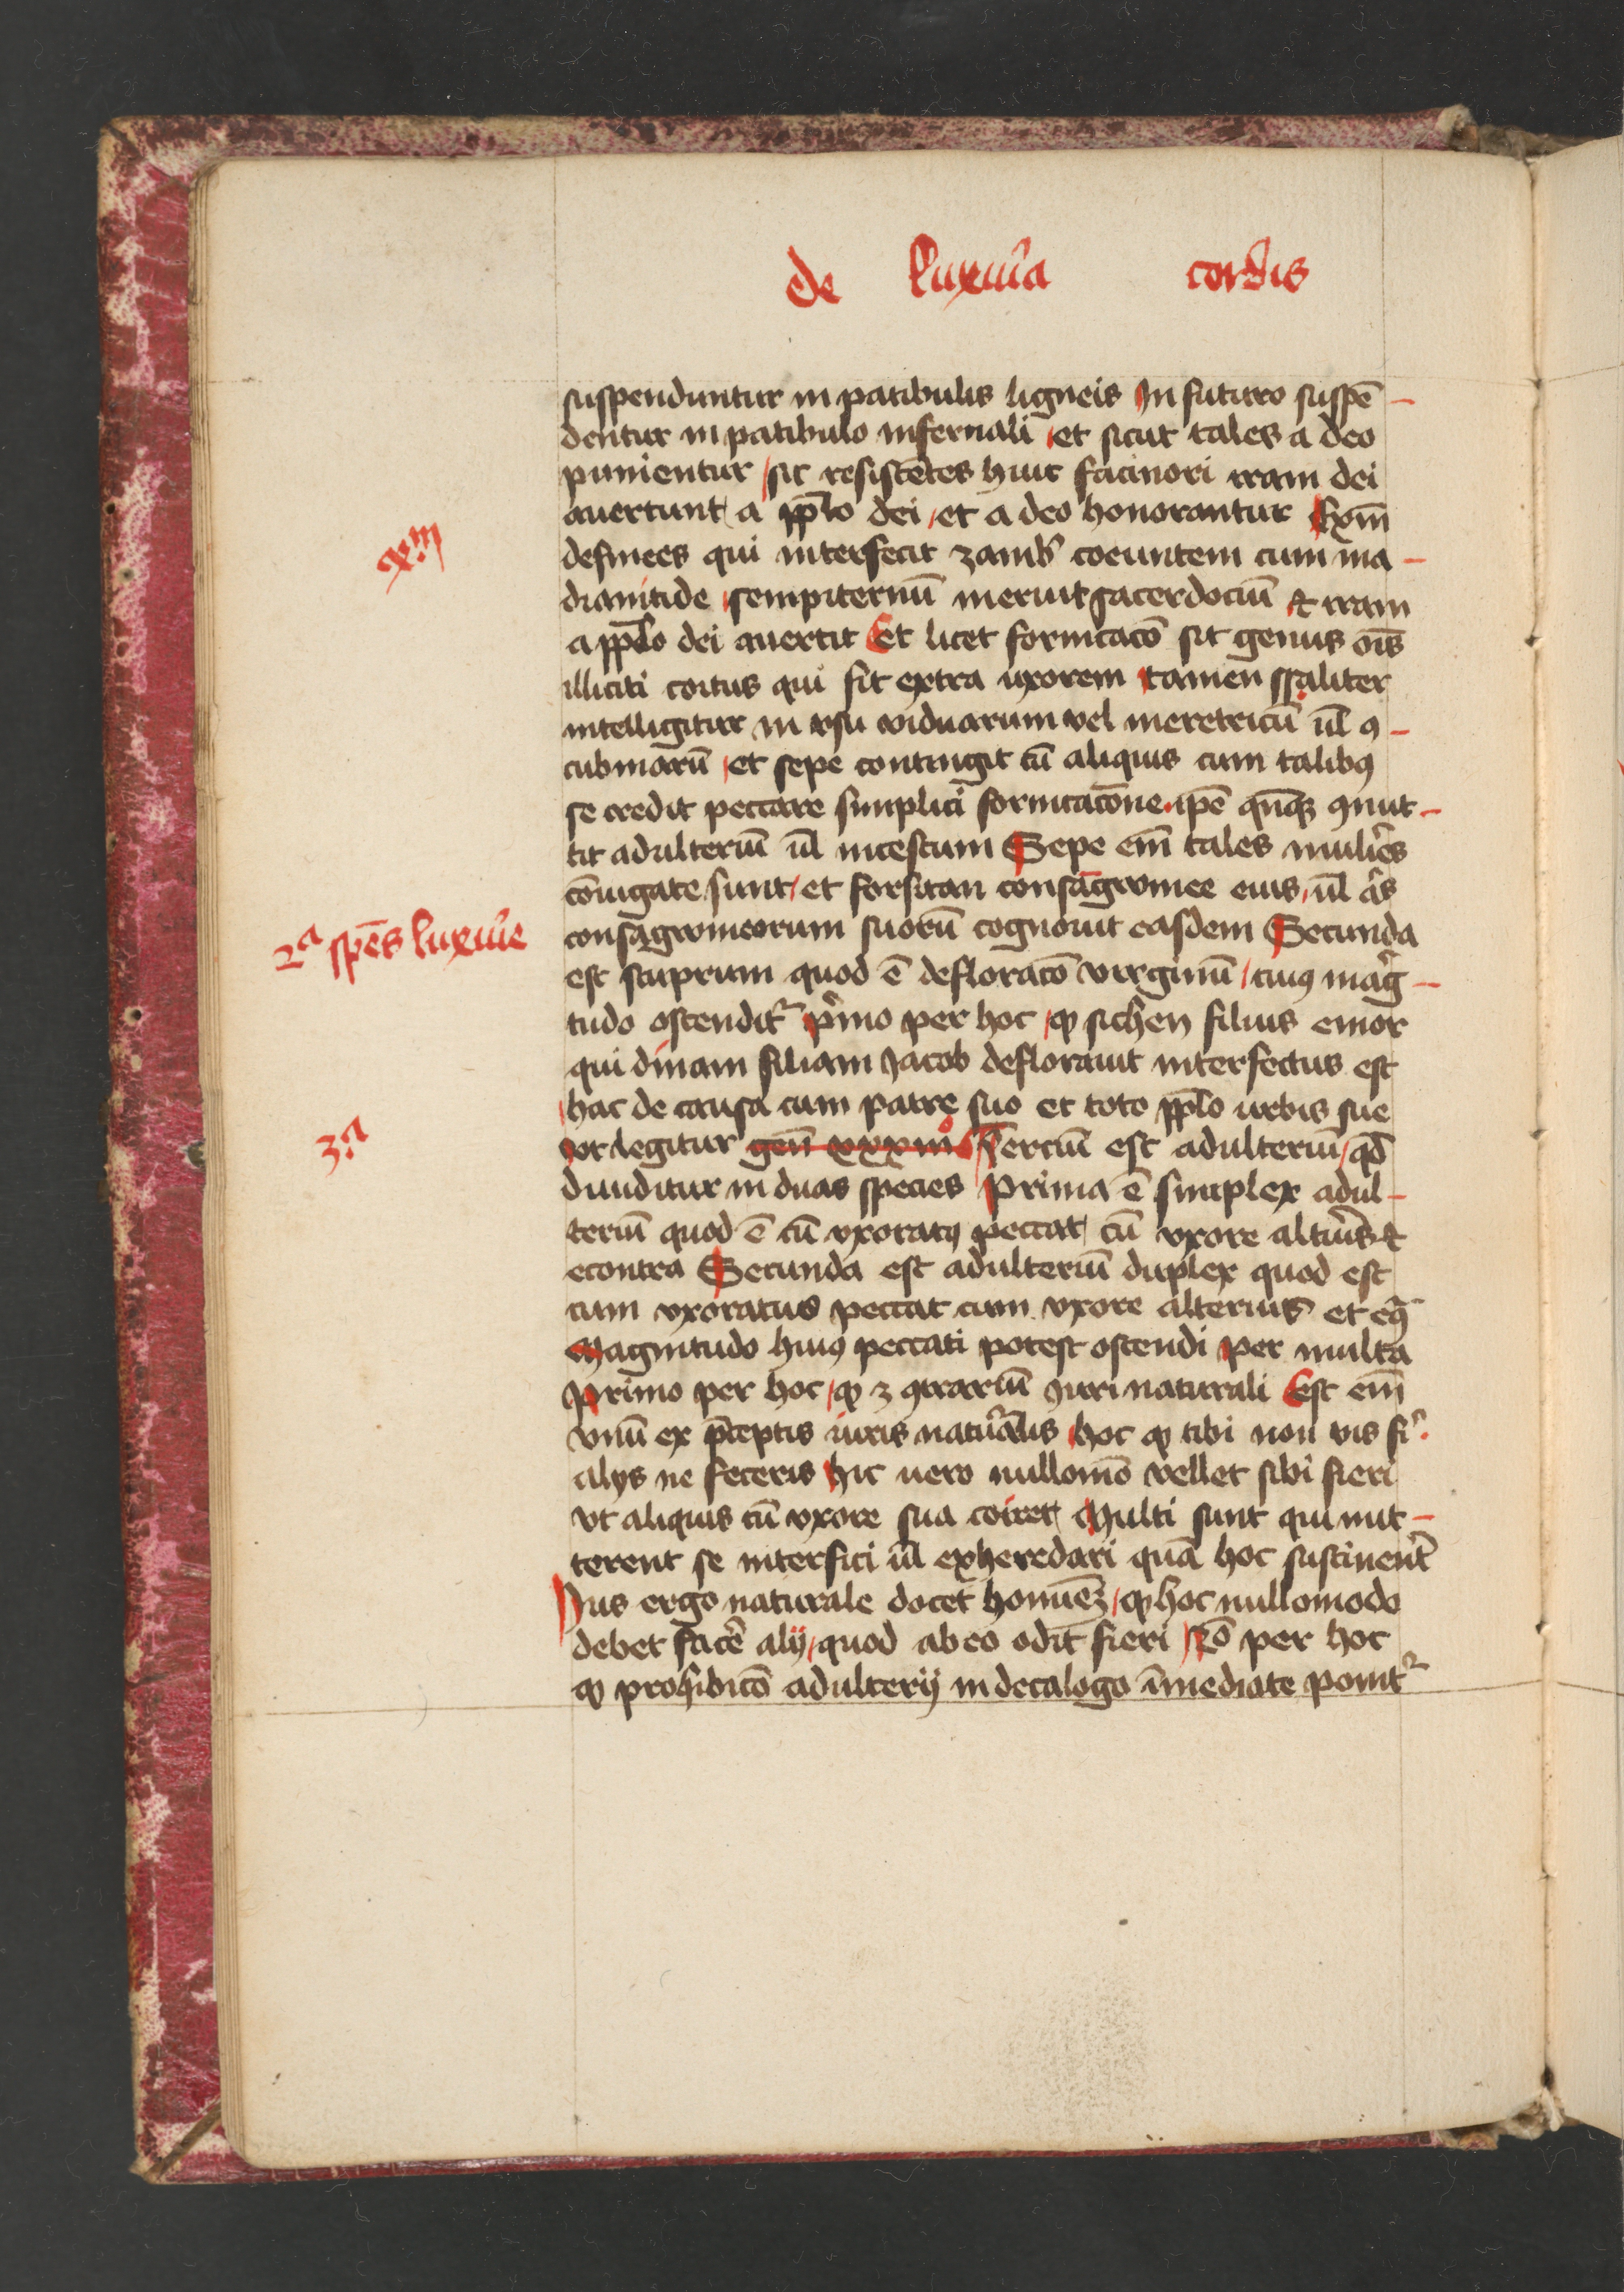 de luxur̄ia cordis
suspenduntur in patibulis ligneis In futuro suspē
dentur in patibulo infernali et sicut tales a deo
punientur sic resistētes huic facinori iram dei
auertunt a pp̄lo dei et a deo honorantur Exm̄
de finees qui interfecit zambr̄ coeuntem cum ma
exm̄
dianitide sempiternū meruit sacerdociū et iram
a pp̄lo dei auertit Et licet fornicacō sit genus oīs
illiciti coitus qui fit extra uxorem tamen sp̄aliter
intelligitur in vsu viduarum vel meretricū ul̄ ꝯ
cubinarū et sepe contingit cū aliquis cum talibꝰ
se credit peccare simplici fornicacōne ip̄e qn̄qꝫ ꝯmit
tit adulteriū ul̄ incestum Sepe em̄ tales mulier̄es
cōiugate sunt et forsitan consāgwinee eius ul̄ als̄
2ᵃ spēs luxur̄ie
consāgwineorum suorū cognouit easdem Secunda
est stuprum quod ē defloracō virginū cuiꝰ maḡ
tudo ostendit᷑ p̄mo per hoc ꝙ sichen filius emor
qui dinam filiam Jacob deflorauit interfectus est
hac de causa cum patre suo et toto pp̄lo urbis sue
3ᵃ
vt legitur gen̄ xxxiiiiº Terciū est adulteriū qd̄
diuiditur in duas species Prima ē simplex adul
teriū quod ē cū vxoratꝰ peccat cū vxore alteriꝰ et
econtra Secunda est adulteriū duplex quod est
cum vxoratus peccat cum vxore alterius et eꝯ̄
Magnitudo huiꝰ peccati potest ostendi per multa
Primo per hoc ꝙ ꝫ ꝯtrariū iuri naturali Est em̄
vnū ex p̄ceptis iuris natur̄alis hoc ꝙ tibi non vis fi᷑
alijs ne feceris hic uero nullomō vellet sibi fieri
vt aliquis cū vxore sua coiret Multi sunt qui mit
terent se interfici ul̄ exheredari quā hoc sustinerēt
Ius ergo naturale docet hominēꝫ ꝙ hoc nullomodo
debet facer̄e alij quod ab eo odit fieri 2ō per hoc
ꝙ prohibicō adulterij in decalogo īmediate ponit᷑